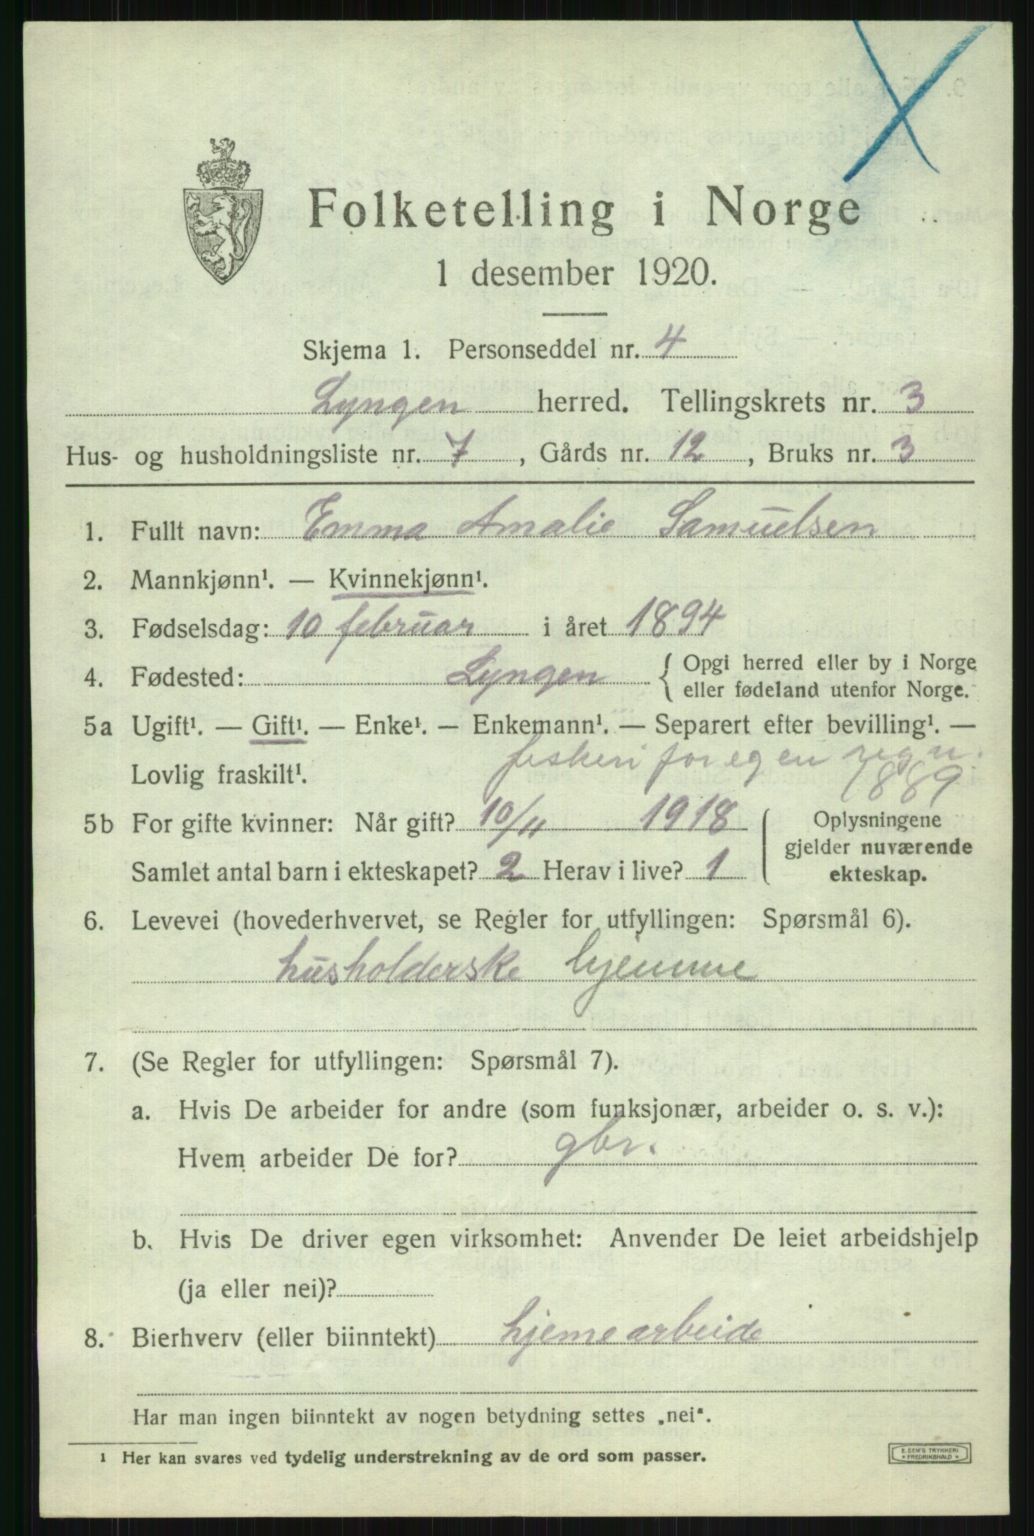 Folketelling i Norge
1 desember 1920.
Skjema 1. Personseddel nr. 4
Lyngen herred. Tellingskrets nr. 3
Hus- og husholdningsliste nr. 7, Gårds nr. 12, Bruks nr. 3
1. Fullt navn: Emma Amalie Samuelsen
2. Mannkjønn¹. — Kvinnekjønn¹.
3. Fødselsdag: 10 februar i året 1894
4. Fødested: Lyngen { Opgi herred eller by i Norge
eller fødeland utenfor Norge.
5a Ugift¹. — Gift¹. — Enke¹. — Enkemann¹. — Separert efter bevilling¹. —
fiskeri for egen regn.
Lovlig fraskilt¹. 1889
5b For gifte kvinner: Når gift? 10/11 1918
Samlet antal barn i ekteskapet? 2 Herav i live? 1
Oplysningene
gjelder nuværende
ekteskap.
6. Levevei (hovederhvervet, se Regler for utfyllingen: Spørsmål 6).
husholderske hjemme
7. (Se Regler for utfyllingen: Spørsmål 7).
a. Hvis De arbeider for andre (som funksjonær, arbeider o. s. v.):
Hvem arbeider De for? gbr.
b. Hvis De driver egen virksomhet: Anvender De leiet arbeidshjelp
(ja eller nei)?
8. Bierhverv (eller biinntekt) hjemearbeide
Har man ingen biinntekt av nogen betydning settes „nei".
¹ Her kan svares ved tydelig understrekning av de ord som passer.
E. SEM'S TRYKKERI
FREDRIKSHALD